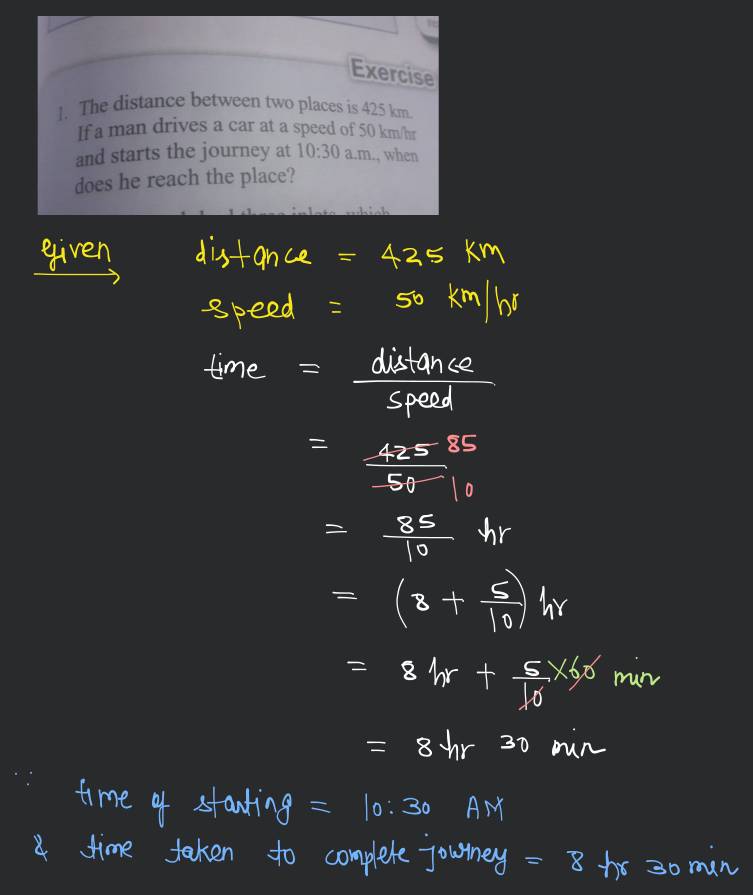 Exercise
1. The distance between two places is 425 km.
If a man drives a car at a speed of 50 km/hr
and starts the journey at 10:30 a.m., when
does he reach the place?
which
given distance = 425 km
speed = 50 km/hr
time = distance
speed
= 425 85
50 10
= 85 hr
10
= (8 + 5/10) hr
= 8 hr + 5/10 × 60 min
= 8 hr 30 min
∵ time of starting = 10:30 AM
& time taken to complete journey = 8 hr 30 min